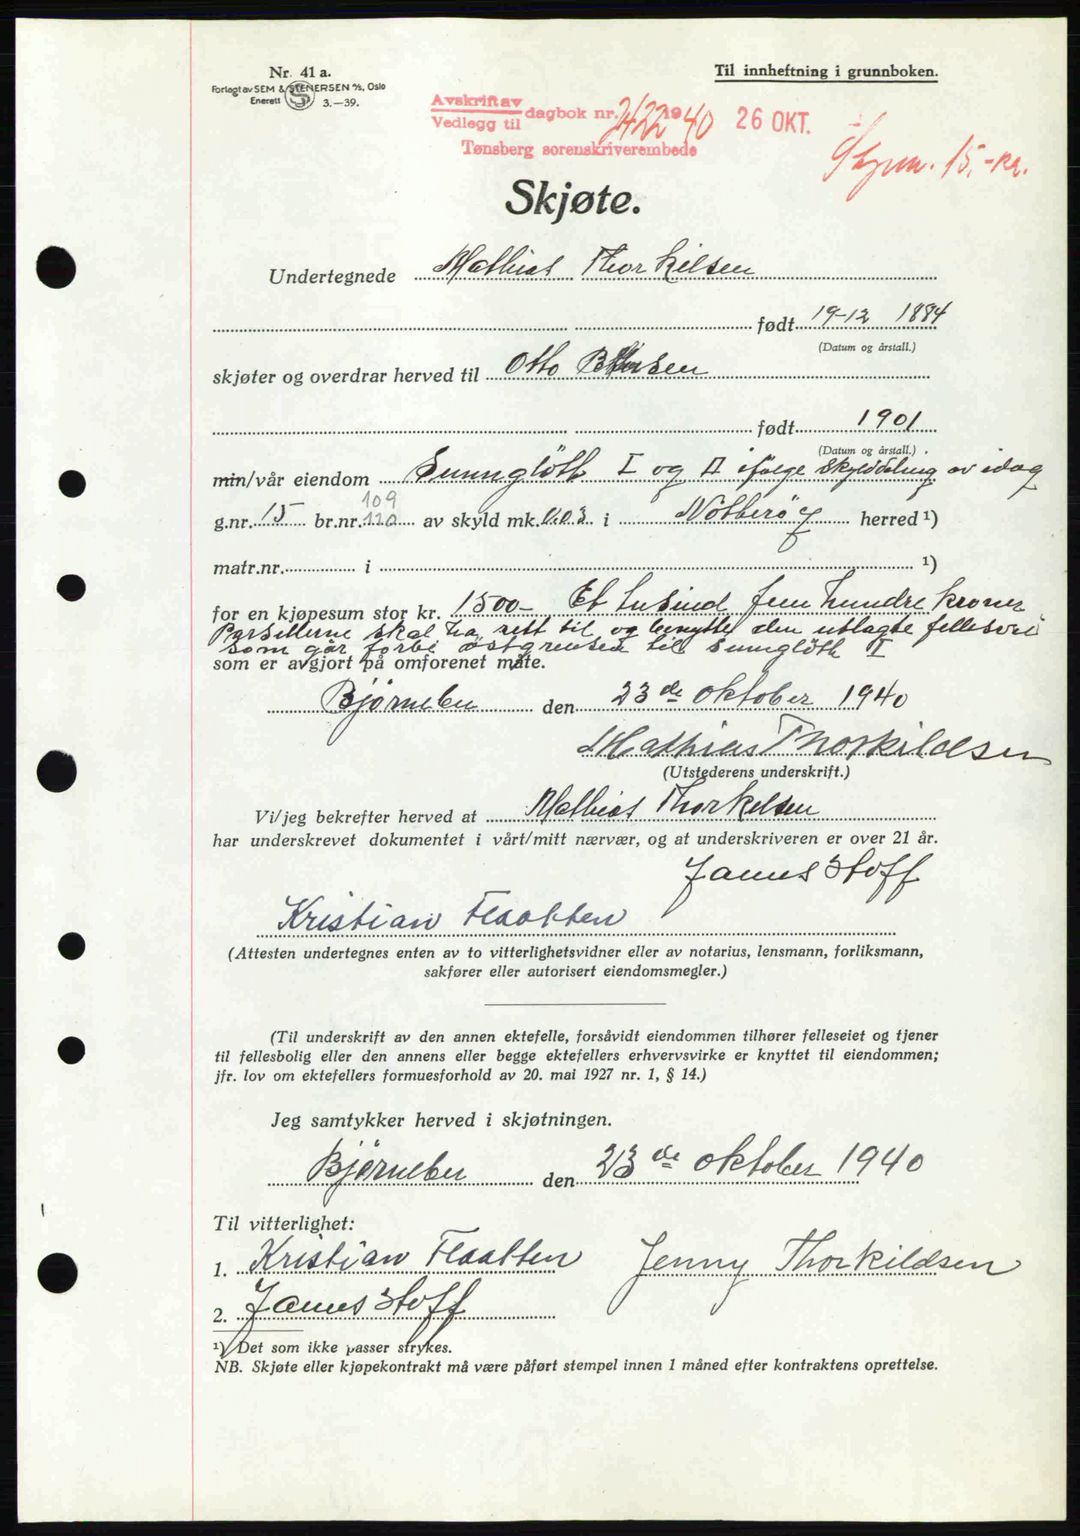 Nr. 41 a.
Forlagt av SEM & STENERSEN A/S, Oslo
Enerett S 3.—39.
Til innheftning i grunnboken.
Avskrift av
Vedlegg til dagbok nr. 2422 1940 26 OKT.
Tønsberg sorenskriverembede
15,- kr.
Skjøte.
Undertegnede Mathias Thorkilsen
født 19-12 1884
(Datum og årstall.)
skjøter og overdrar herved til Otto
født 1901
(Datum og årstall.)
min/vår eiendom Sunnglöth I og II ifølge skylddeling av idag
109
g.nr. 15 br.nr. 110 av skyld mk. 0.03 i Nötterö herred ¹)
matr.nr. i ¹)
for en kjøpesum stor kr. 1500- Et tusind fem hundre kroner
Parsellerne skal ha rett til og benytte den utlagte fellesvei
som går forbi östgrensen til Sunnglöth I
som er avgjort på omforenet måte.
Bjørnebu den 23 de oktober 1940
Mathias Thorkildsen
(Utstederens underskrift.)
Vi/jeg bekrefter herved at Mathias Thorkelsen
har underskrevet dokumentet i vårt/mitt nærvær, og at underskriveren er over 21 år.
James Hoff
Kristian Flaatten
(Attesten undertegnes enten av to vitterlighetsvidner eller av notarius, lensmann, forliksmann,
sakfører eller autorisert eiendomsmegler.)
(Til underskrift av den annen ektefelle, forsåvidt eiendommen tilhører felleseiet og tjener
til fellesbolig eller den annens eller begge ektefellers erhvervsvirke er knyttet til eiendommen;
jfr. lov om ektefellers formuesforhold av 20. mai 1927 nr. 1, § 14.)
Jeg samtykker herved i skjøtningen.
Bjørnebu den 23 de oktober 1940
Til vitterlighet:
1. Kristian Flaatten Jenny Thorkildsen
2. James Hoff
¹) Det som ikke passer strykes.
NB. Skjøte eller kjøpekontrakt må være påført stempel innen 1 måned efter kontraktens oprettelse.